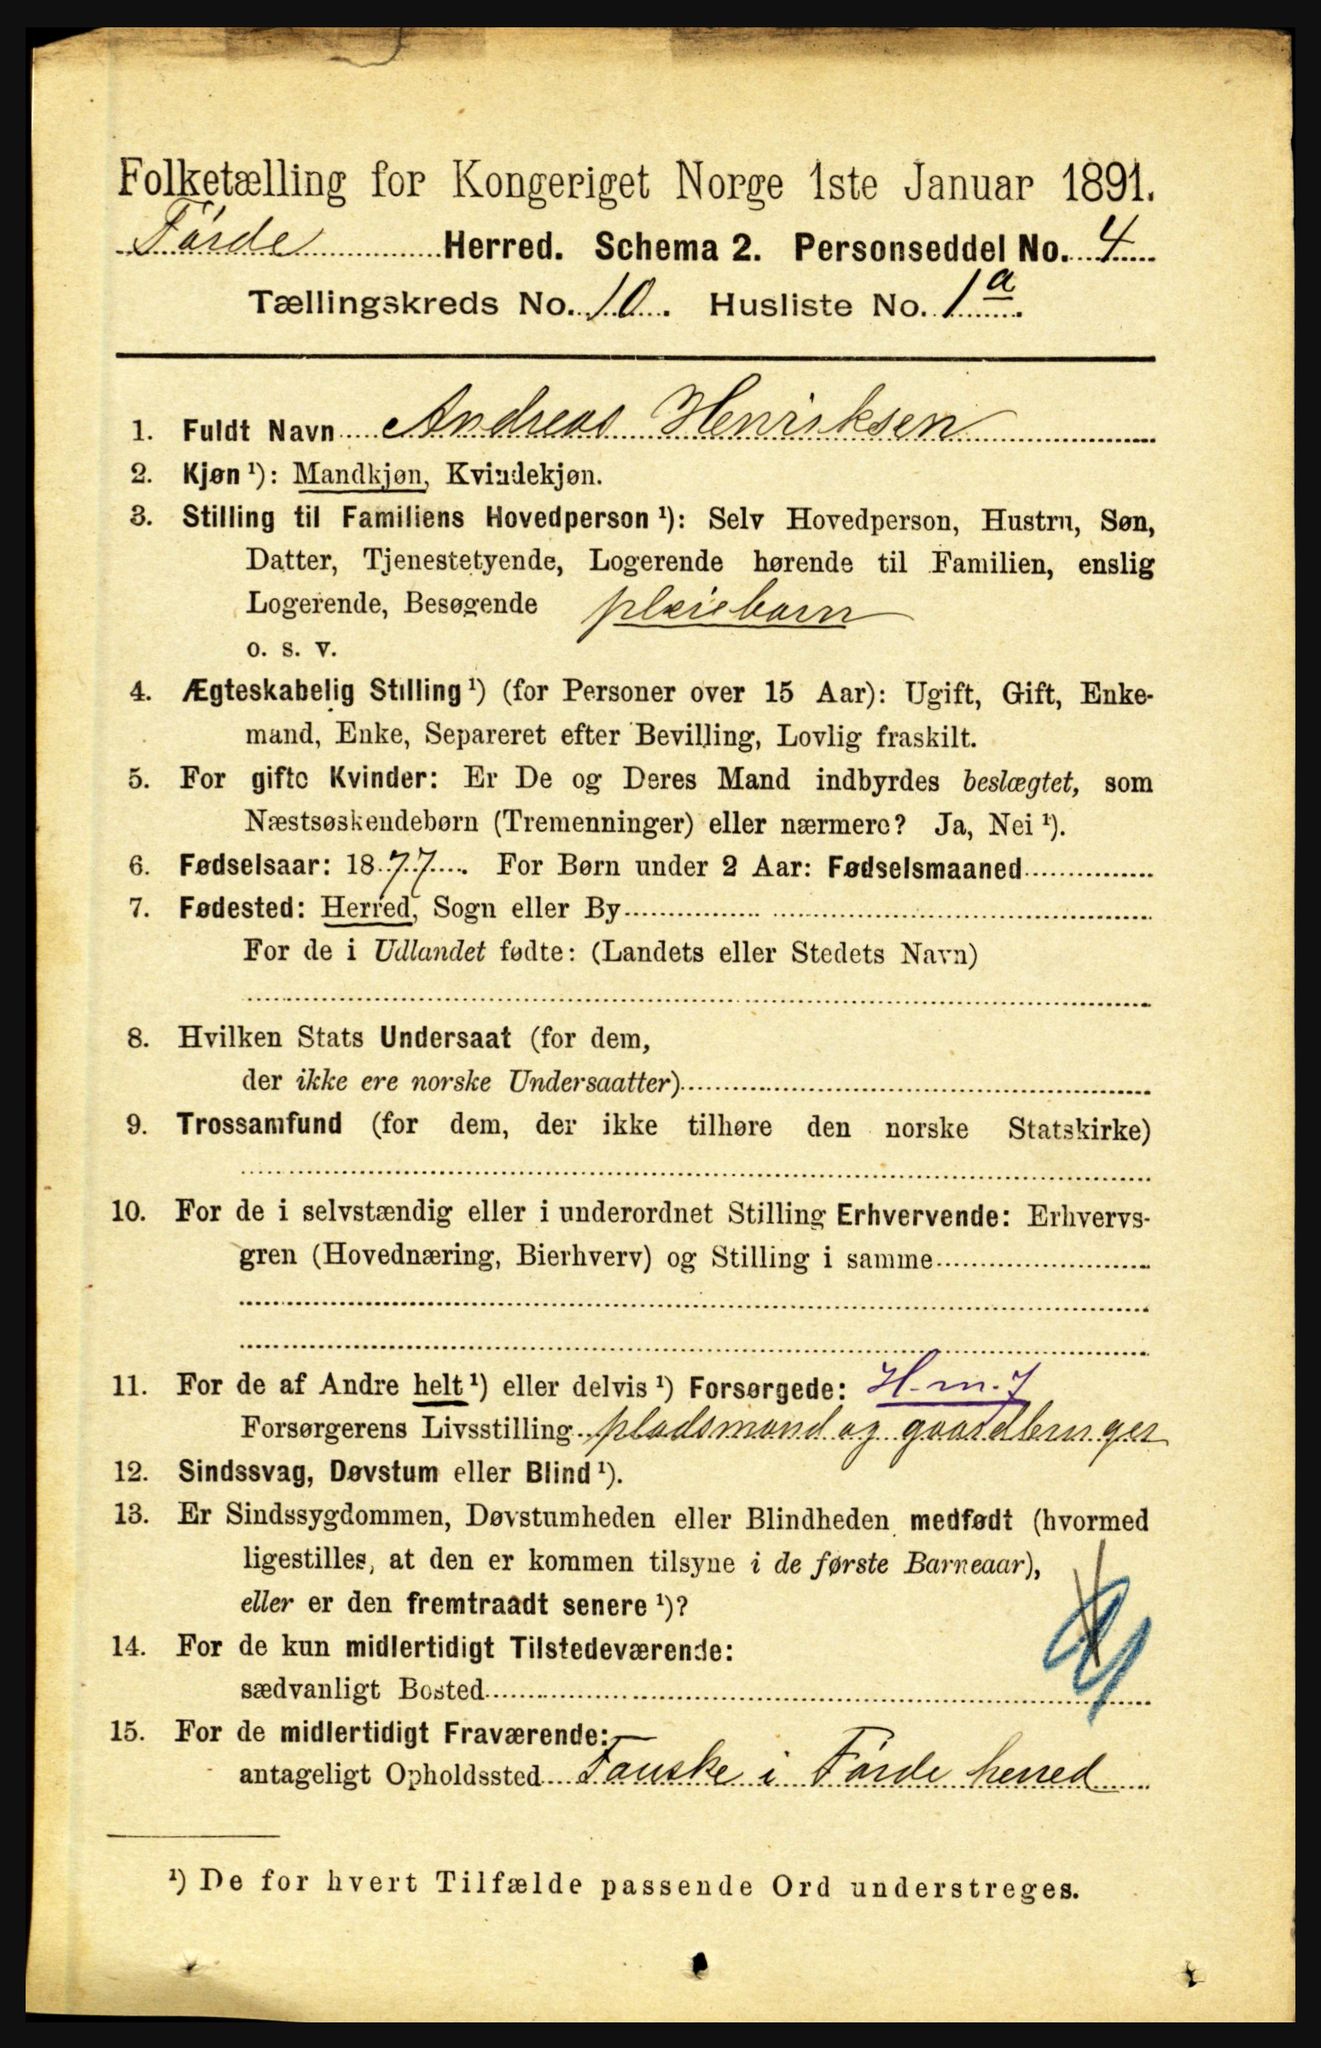 Folketælling for Kongeriget Norge 1ste Januar 1891.
Førde Herred. Schema 2. Personseddel No. 4
Tællingskreds No. 10. Husliste No. 1a.
1. Fuldt Navn Andreas Henriksen
2. Kjøn ¹): Mandkjøn, Kvindekjøn.
3. Stilling til Familiens Hovedperson ¹): Selv Hovedperson, Hustru, Søn,
Datter, Tjenestetyende, Logerende hørende til Familien, enslig
Logerende, Besøgende pleiebarn
o. s. v.
4. Ægteskabelig Stilling ¹) (for Personer over 15 Aar): Ugift, Gift, Enke-
mand, Enke, Separeret efter Bevilling, Lovlig fraskilt.
5. For gifte Kvinder: Er De og Deres Mand indbyrdes beslægtet, som
Næstsøskendebørn (Tremenninger) eller nærmere? Ja, Nei ¹).
6. Fødselsaar: 1877. For Børn under 2 Aar: Fødselsmaaned
7. Fødested: Herred, Sogn eller By
For de i Udlandet fødte: (Landets eller Stedets Navn)
8. Hvilken Stats Undersaat (for dem,
der ikke ere norske Undersaatter)
9. Trossamfund (for dem, der ikke tilhøre den norske Statskirke)
10. For de i selvstændig eller i underordnet Stilling Erhvervende: Erhvervs-
gren (Hovednæring, Bierhverv) og Stilling i samme
11. For de af Andre helt ¹) eller delvis ¹) Forsørgede: H. m. J
Forsørgerens Livsstilling pladsmand og gaardbruger
12. Sindssvag, Døvstum eller Blind ¹).
13. Er Sindssygdommen, Døvstumheden eller Blindheden medfødt (hvormed
ligestilles, at den er kommen tilsyne i de første Barneaar),
eller er den fremtraadt senere ¹)?
14. For de kun midlertidigt Tilstedeværende:
sædvanligt Bosted
15. For de midlertidigt Fraværende:
antageligt Opholdssted Fauske i Førde herred
¹) De for hvert Tilfælde passende Ord understreges.